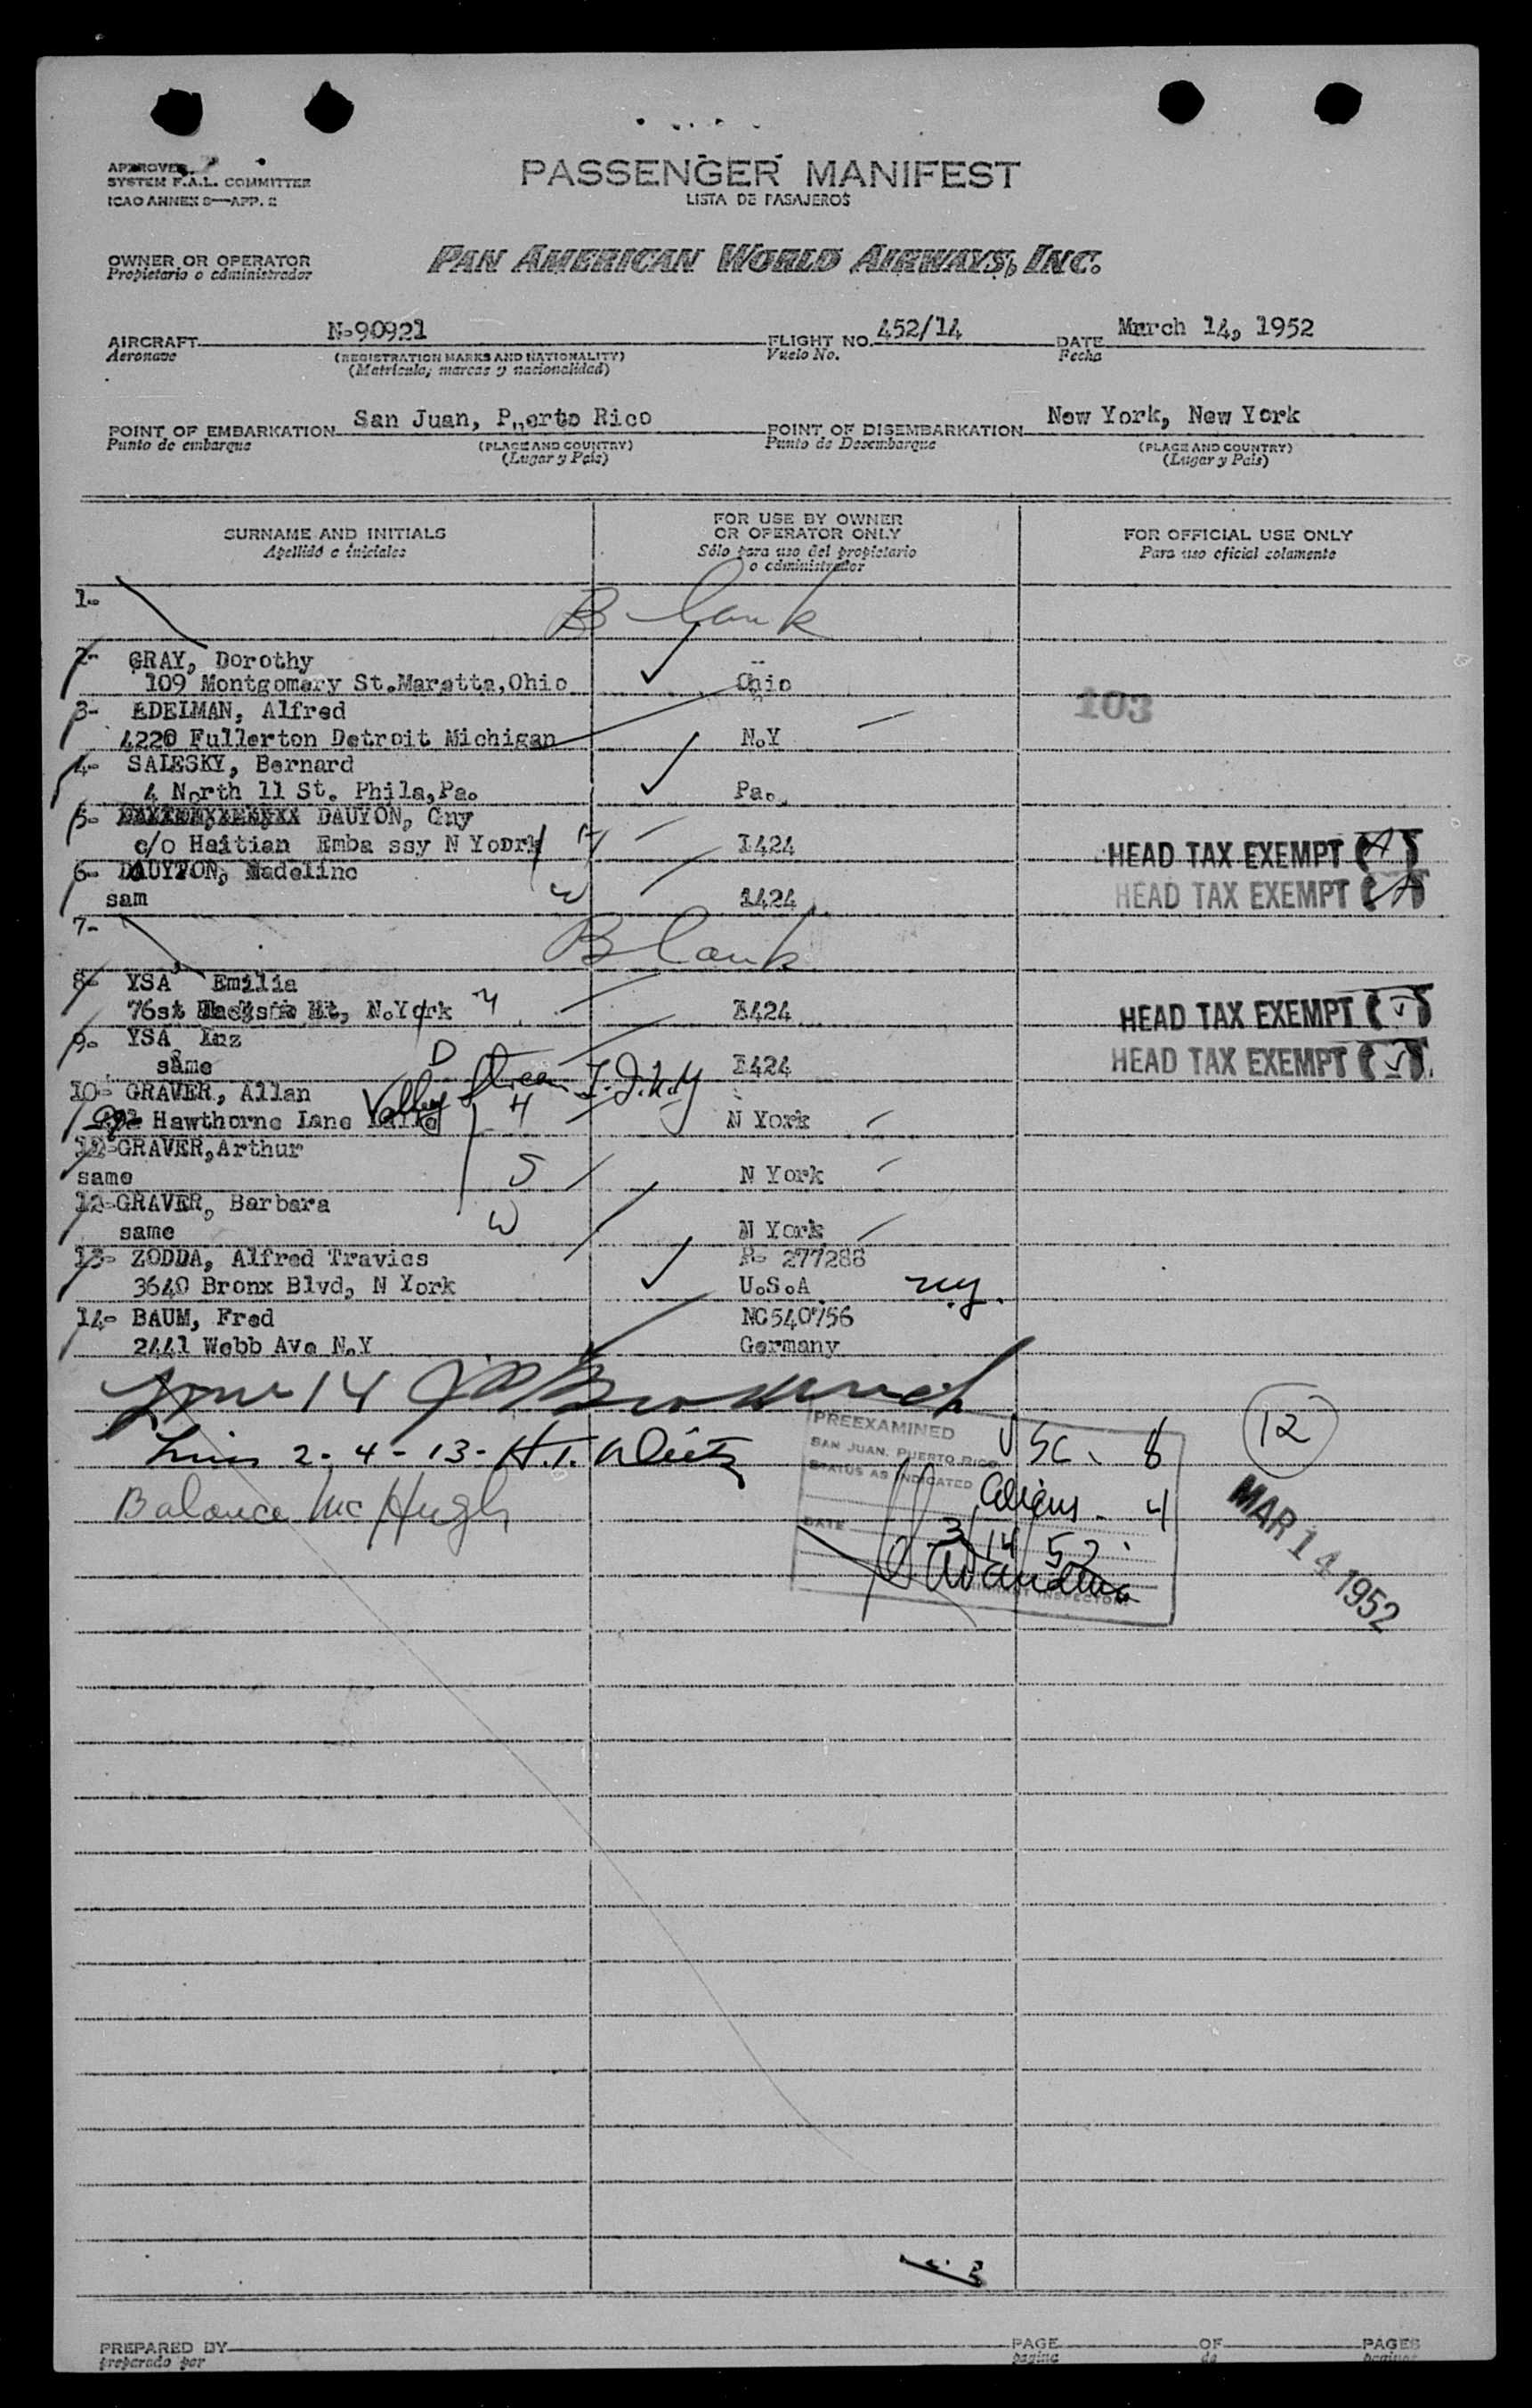 APPROVED
SYSTEM F.A.L. COMMITTEE
ICAO ANNEX 9—APP. 2
PASSENGER MANIFEST
LISTA DE PASAJEROS
OWNER OR OPERATOR
Propietario o administrador
PAN AMERICAN WORLD AIRWAYS, INC.
AIRCRAFT N-90921 FLIGHT NO. 452/14 DATE March 14, 1952
Aeronave (REGISTRATION MARKS AND NATIONALITY) Vuelo No. Fecha
(Matricula, marcas y nacionalidad)
POINT OF EMBARKATION San Juan, Puerto Rico POINT OF DISEMBARKATION New York, New York
Punto de embarque (PLACE AND COUNTRY) Punto de Desembarque (PLACE AND COUNTRY)
(Lugar y Pais) (Lugar y Pais)
SURNAME AND INITIALS
Apellido e iniciales
FOR USE BY OWNER
OR OPERATOR ONLY
Sólo para uso del propietario
o administrador
FOR OFFICIAL USE ONLY
Para uso oficial solamente
1- Blank
2- GRAY, Dorothy
109 Montgomery St.Maratta,Ohio Ohio
103
3- EDELMAN, Alfred
4220 Fullerton Detroit Michigan N.Y
4- SALESKY, Bernard
4 North 11 St. Phila,Pa. Pa.
5- DAUYON, Gny
c/o Haitian Emba ssy N Yoork H I424 HEAD TAX EXEMPT
6- DAUYTON, Madeline
sam W I424 HEAD TAX EXEMPT
7- Blank
8- YSA Emilia
76st Ht, N.York M I424 HEAD TAX EXEMPT
9- YSA Luz
same D I424 HEAD TAX EXEMPT
10- GRAVER, Allan Valley Stream L.I.N.Y
Hawthorne Lane H N York
GRAVER,Arthur
same S N York
12-GRAVER, Barbara
same W N York
13- ZODDA, Alfred Travies P- 277288
3640 Bronx Blvd, N York U.S.A n.y.
14- BAUM, Fred NC540756
2441 Webb Ave N.Y Germany
14
2-4-13- H.I.
Balance McHugh
PREEXAMINED
SAN JUAN, PUERTO RICO
STATUS AS INDICATED
USC. 8
Aliens - 4
DATE 3/14/52
IMMIGRANT INSPECTOR
12
MAR 14 1952
PREPARED BY PAGE OF PAGES
preparado por pagina de paginas